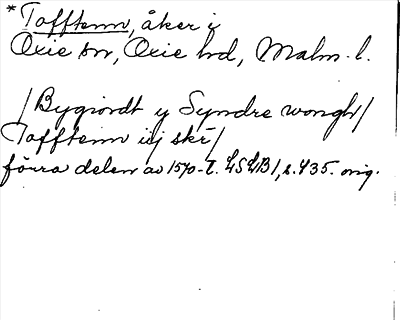 *Tafftenn, åker i
Oxie sn, Oxie hd, Malm. l.
/Bygiordt y Syndre wongh/
Tafftenn iij skr/
förra delen av 1570-t. LSLB1, s. 435. orig.